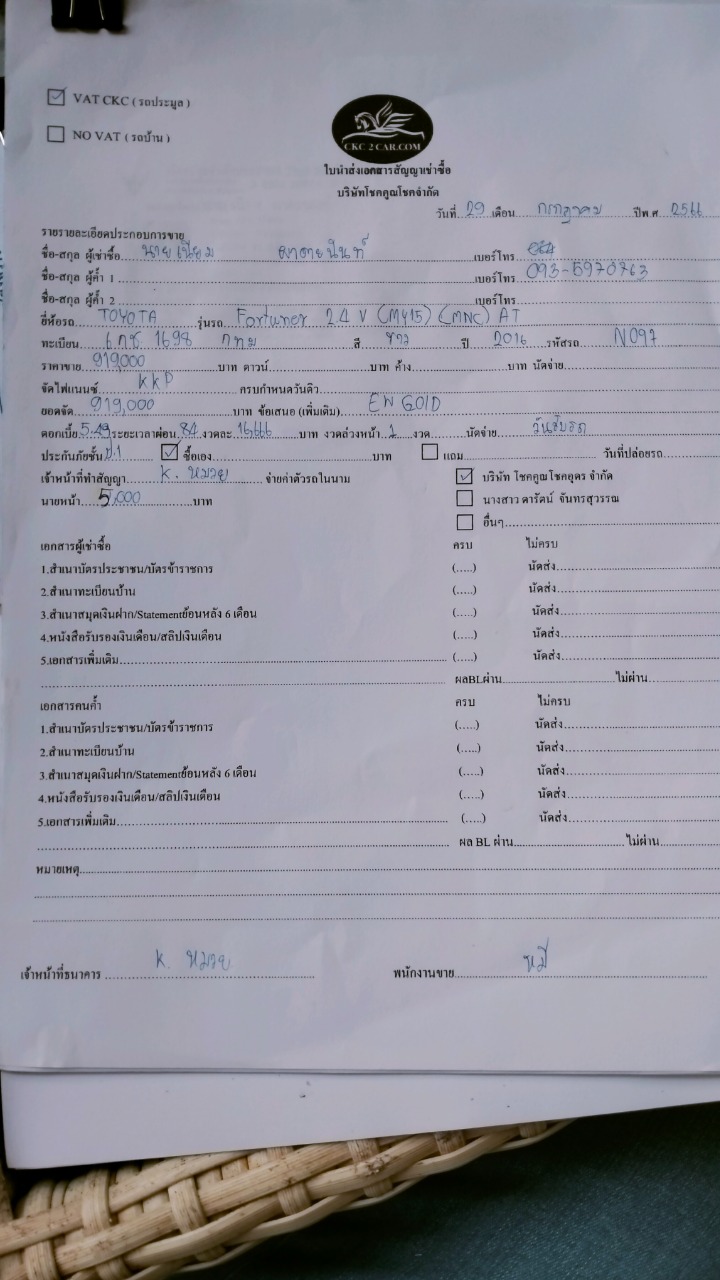 VAT CKC ( รถประมูล )
NO VAT ( รถบ้าน )
CKC 2 CAR.COM
ใบนำส่งเอกสารสัญญาเช่าซื้อ
บริษัทโชคคูณโชคจำกัด
วันที่ 29 เดือน กรกฎาคม ปีพ.ศ. 2566
รายรายละเอียดประกอบการขาย
ชื่อ-สกุล ผู้เช่าซื้อ นาย เบอร์โทร
ชื่อ-สกุล ผู้ค้ำ 1 เบอร์โทร 093-5970763
ชื่อ-สกุล ผู้ค้ำ 2 เบอร์โทร
ยี่ห้อรถ TOYOTA รุ่นรถ Fortuner 2.4 V (MY15) (MNC) AT
ทะเบียน 6 กช 1698 กทม สี ขาว ปี 2016 รหัสรถ N097
ราคาขาย 919,000 บาท ดาวน์ บาท ค้าง บาท นัดจ่าย
จัดไฟแนนซ์ KKP ครบกำหนดวันคิว
ยอดจัด 919,000 บาท ข้อเสนอ (เพิ่มเติม) EW GOLD
ดอกเบี้ย 5.49 ระยะเวลาผ่อน 84 งวดละ 16,666 บาท งวดล่วงหน้า 1 งวด นัดจ่าย วันรับรถ
ประกันภัยชั้น ป.1 ซื้อเอง บาท แถม วันที่ปล่อยรถ
เจ้าหน้าที่ทำสัญญา K. หมวย จ่ายค่าตัวรถในนาม บริษัท โชคคูณโชคอุดร จำกัด
นายหน้า 5,000 บาท นางสาว ดารัตน์ จันทรสุวรรณ
อื่นๆ
เอกสารผู้เช่าซื้อ ครบ ไม่ครบ
1.สำเนาบัตรประชาชน/บัตรข้าราชการ (.....) นัดส่ง
2.สำเนาทะเบียนบ้าน (.....) นัดส่ง
3.สำเนาสมุดเงินฝาก/Statementย้อนหลัง 6 เดือน (.....) นัดส่ง
4.หนังสือรับรองเงินเดือน/สลิปเงินเดือน (.....) นัดส่ง
5.เอกสารเพิ่มเติม (.....) นัดส่ง
ผลBLผ่าน ไม่ผ่าน
เอกสารคนค้ำ ครบ ไม่ครบ
1.สำเนาบัตรประชาชน/บัตรข้าราชการ (.....) นัดส่ง
2.สำเนาทะเบียนบ้าน (.....) นัดส่ง
3.สำเนาสมุดเงินฝาก/Statementย้อนหลัง 6 เดือน (.....) นัดส่ง
4.หนังสือรับรองเงินเดือน/สลิปเงินเดือน (.....) นัดส่ง
5.เอกสารเพิ่มเติม (.....) นัดส่ง
ผล BL ผ่าน ไม่ผ่าน
หมายเหตุ
เจ้าหน้าที่ธนาคาร K. หมวย พนักงานขาย หมี